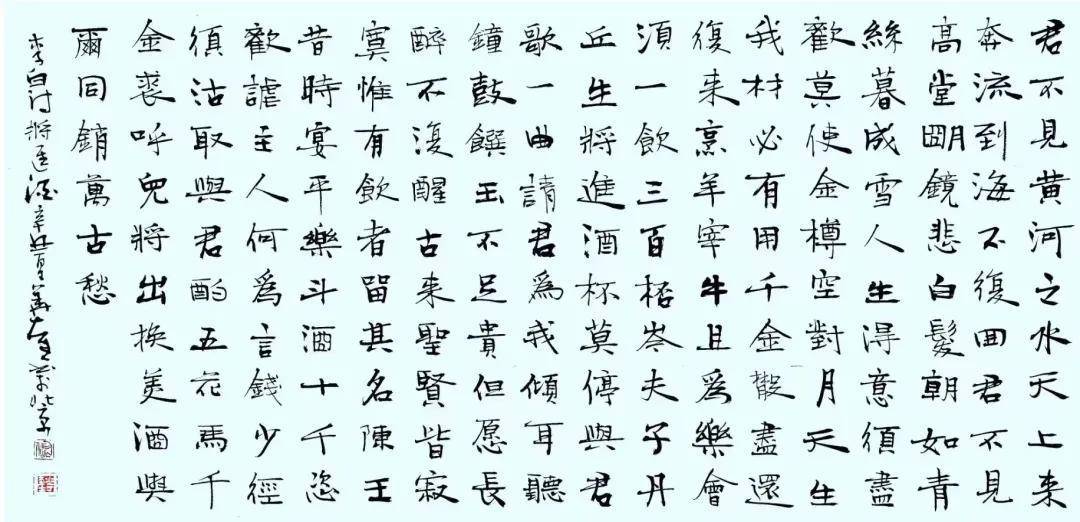 君不見黄河之水天上来
奔流到海不復囬君不見
高堂朙鏡悲白髮朝如青
絲暮成雪人生得意須盡
歡莫使金樽空對月天生
我材必有用千金散盡還
復来烹羊宰牛且為樂會
須一飲三百桮岑夫子丹
丘生將進酒杯莫停與君
歌一曲請君為我傾耳聽
鐘鼓饌玉不足貴但愿長
醉不復醒古来聖賢皆寂
寞惟有飲者留其名陳王
昔時宴平樂斗酒十千恣
歡謔主人何為言錢少徑
須沽取與君酌五花馬千
金裘呼兒將出換美酒與
爾同銷萬古愁
李白詩將進酒辛丑夏北京